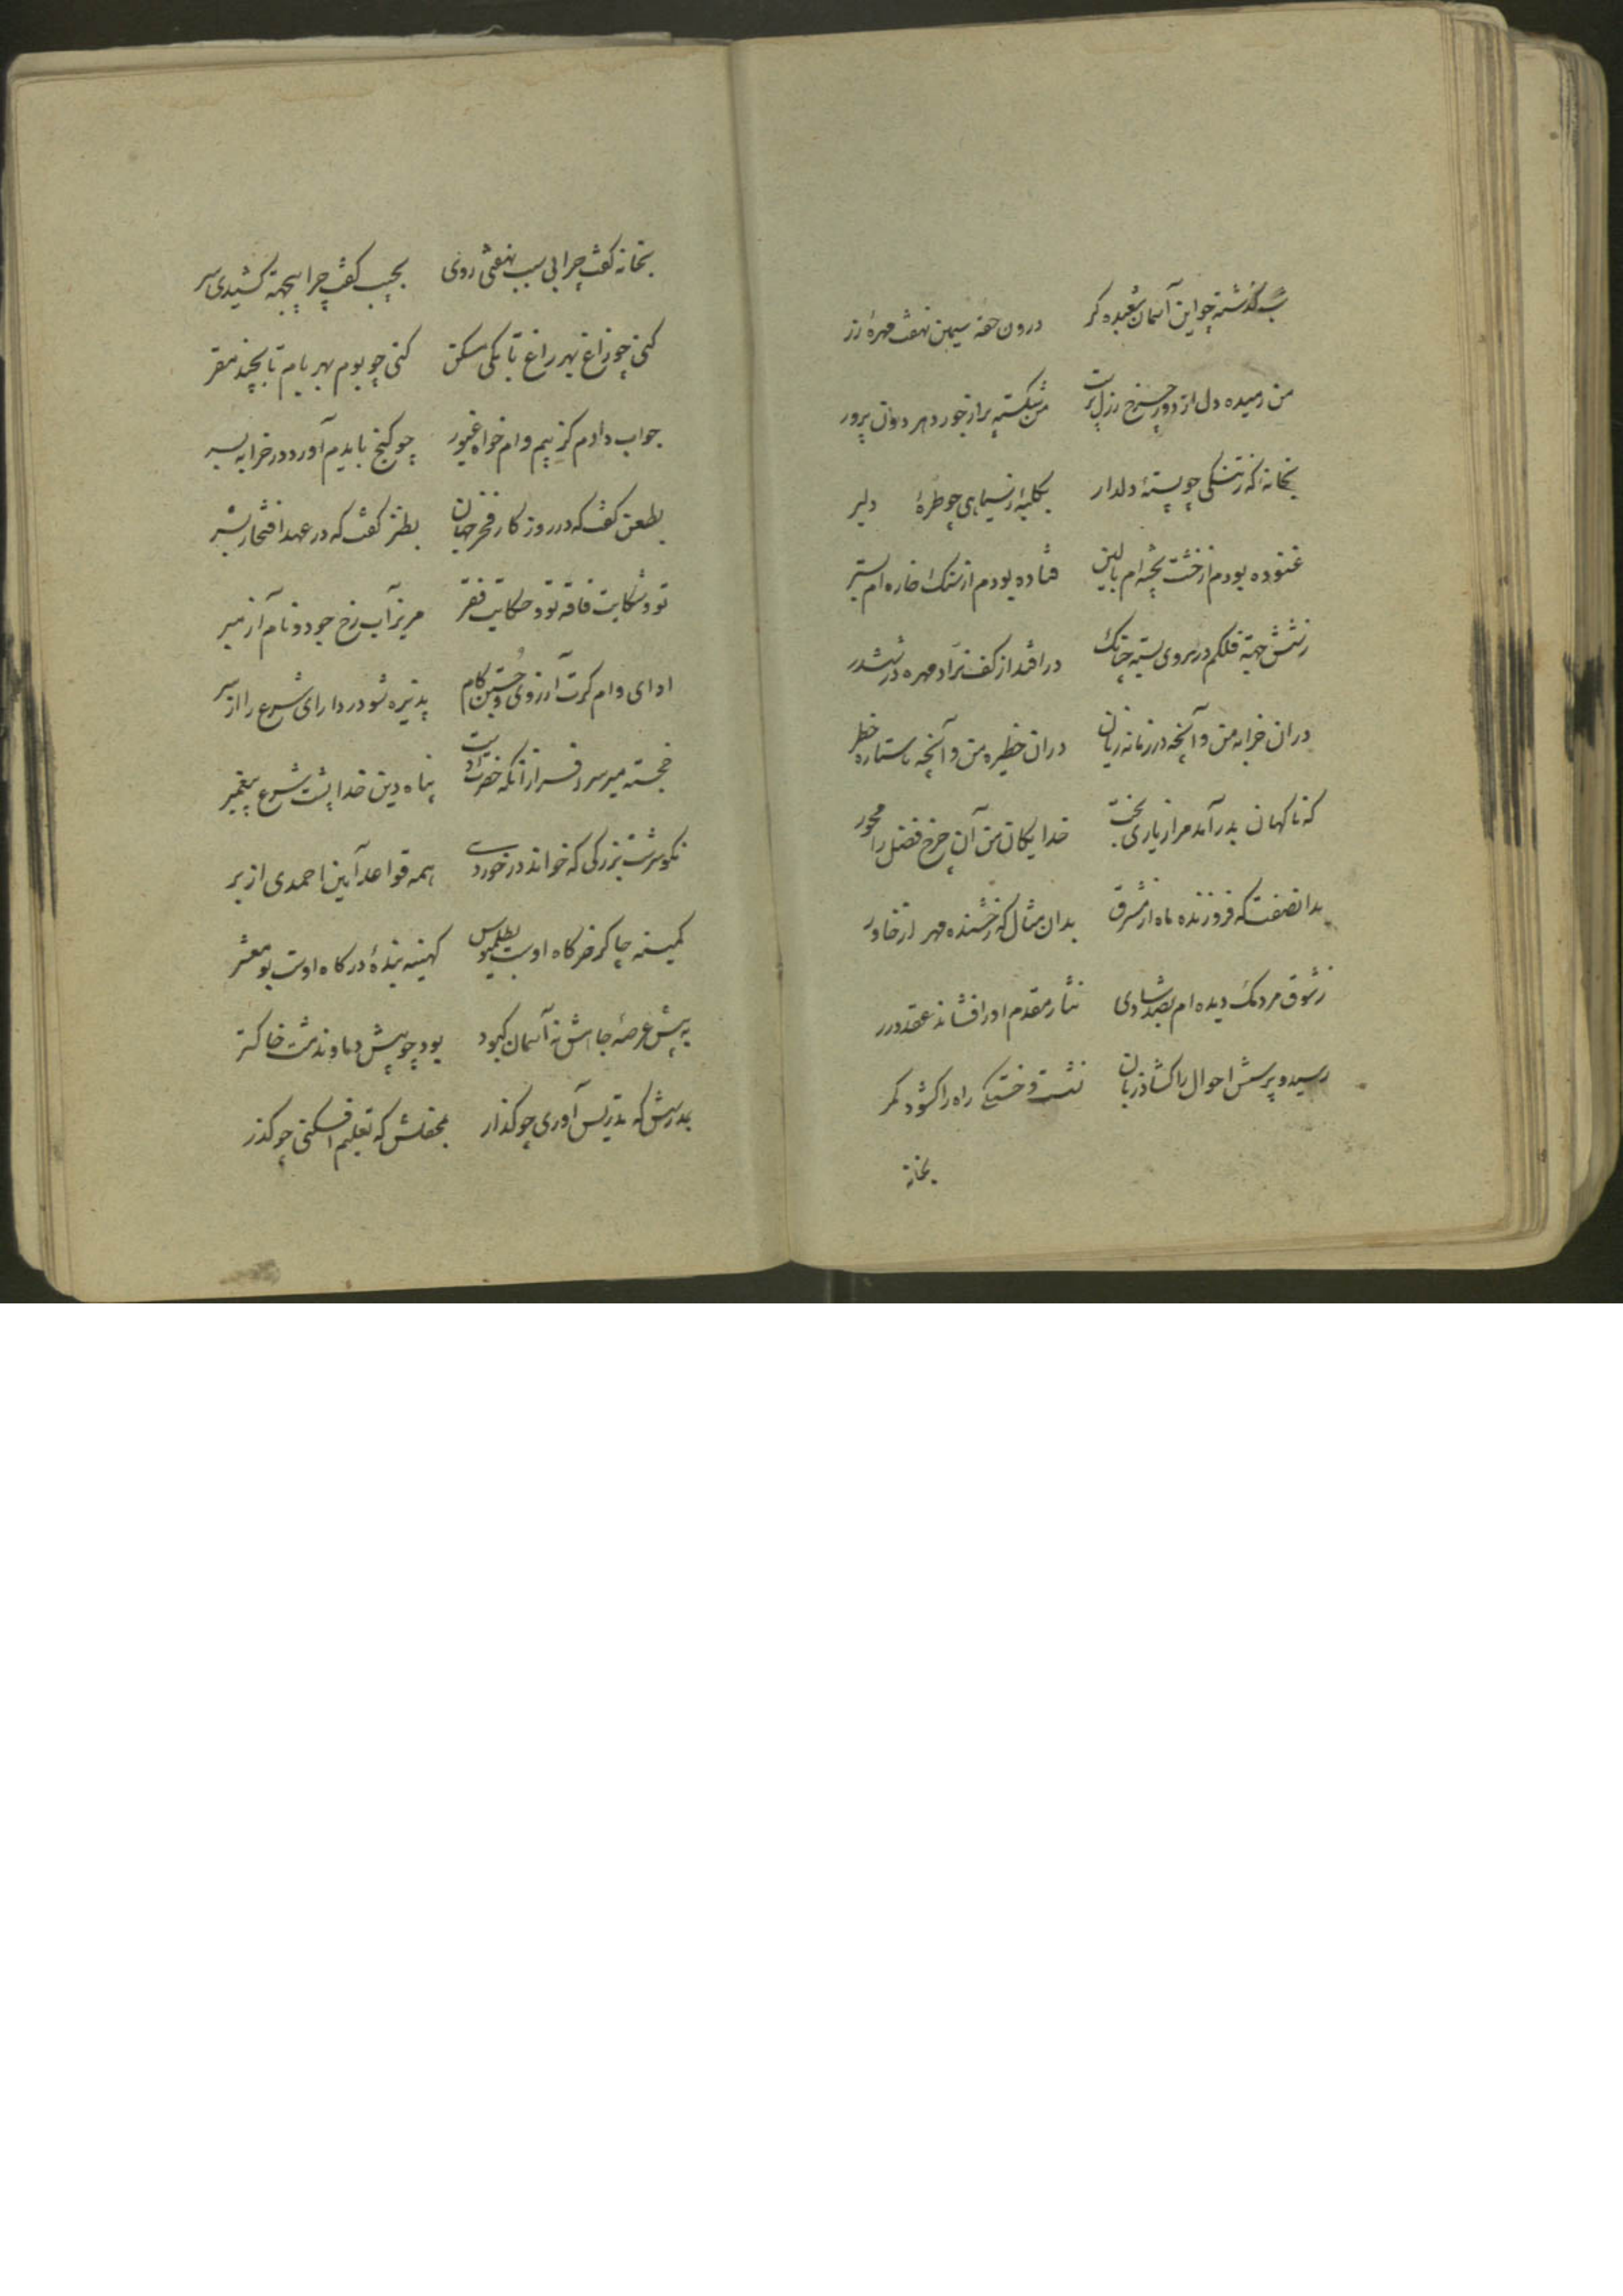 شب گذشته چو این آسمان شعبده گر درون حقه سیمین نهفت مهرهٔ زر
من رمیده دل از دور چرخ رذل پرست من شکسته پر از جور دهر دون پرور
بخانه‌ای که ز تنگی چو پستهٔ دلدار بکلبهٔ ز سیاهی چو طرهٔ دلبر
غنوده بودم از خشت پخته‌ام بالین فتاده بودم از سنک خاره‌ام بستر
ز شش جهة فلکم در بروی بسته چنانک در افتد از کف نراد مهره در ششدر
در ان خرابه من و آنچه در زمانه زیان در ان حظیره من و آنچه با ستاره خطر
که ناکهان بدر آمد مرا ز یاری بخت خدایکان من آن چرخ فضل را محور
بدانصفت که فروزنده ماه از مشرق بدان مثال که رخشنده مهر از خاور
ز شوق مردمک دیده‌ام بصد شادی نثار مقدم او را فشاند عقد درر
رسید و پرسش احوال را کشاد زبان نشست و خستکی راه را کشود کمر
بخانه
بخانه کفت چرا بی سبب نهفتی روی بجیب کفت چرا بیجهة کشیدی سر
کنی چو زاغ بهر راغ تا بکی مسکن کنی چو بوم بهر بام تا بچند مقر
جواب دادم کز بیم وام خواه غیور چو کنج بایدم آورد در خرابه بسر
بطعن کفت که در روزکار فخر جهان بطنز کفت که در عهد افتخار بشر
تو و شکایت فاقه تو و حکایت فقر مریز آب رخ جود و نام آز مبر
ادای وام کرت آرزوی و جستن کام پذیره شو در دارای شرع را از سر
خجسته میر سرافراز آنکه حضرت اوست پناه دین خدا پشت شرع پیغمبر
نکو سرشت بزرکی که خواند در خوردی همه قواعد آیین احمدی از بر
کمینه چاکر خرکاه اوست بطلمیوس کهینه بندهٔ درکاه اوست بو معشر
به پیش عرصهٔ جاهش نه آسمان کبود بود چو پیش دماوند مشت خاکستر
بمدرسش که تدریس آوری چو کذار بمحفلش که تعلیم افکنی چو کذر